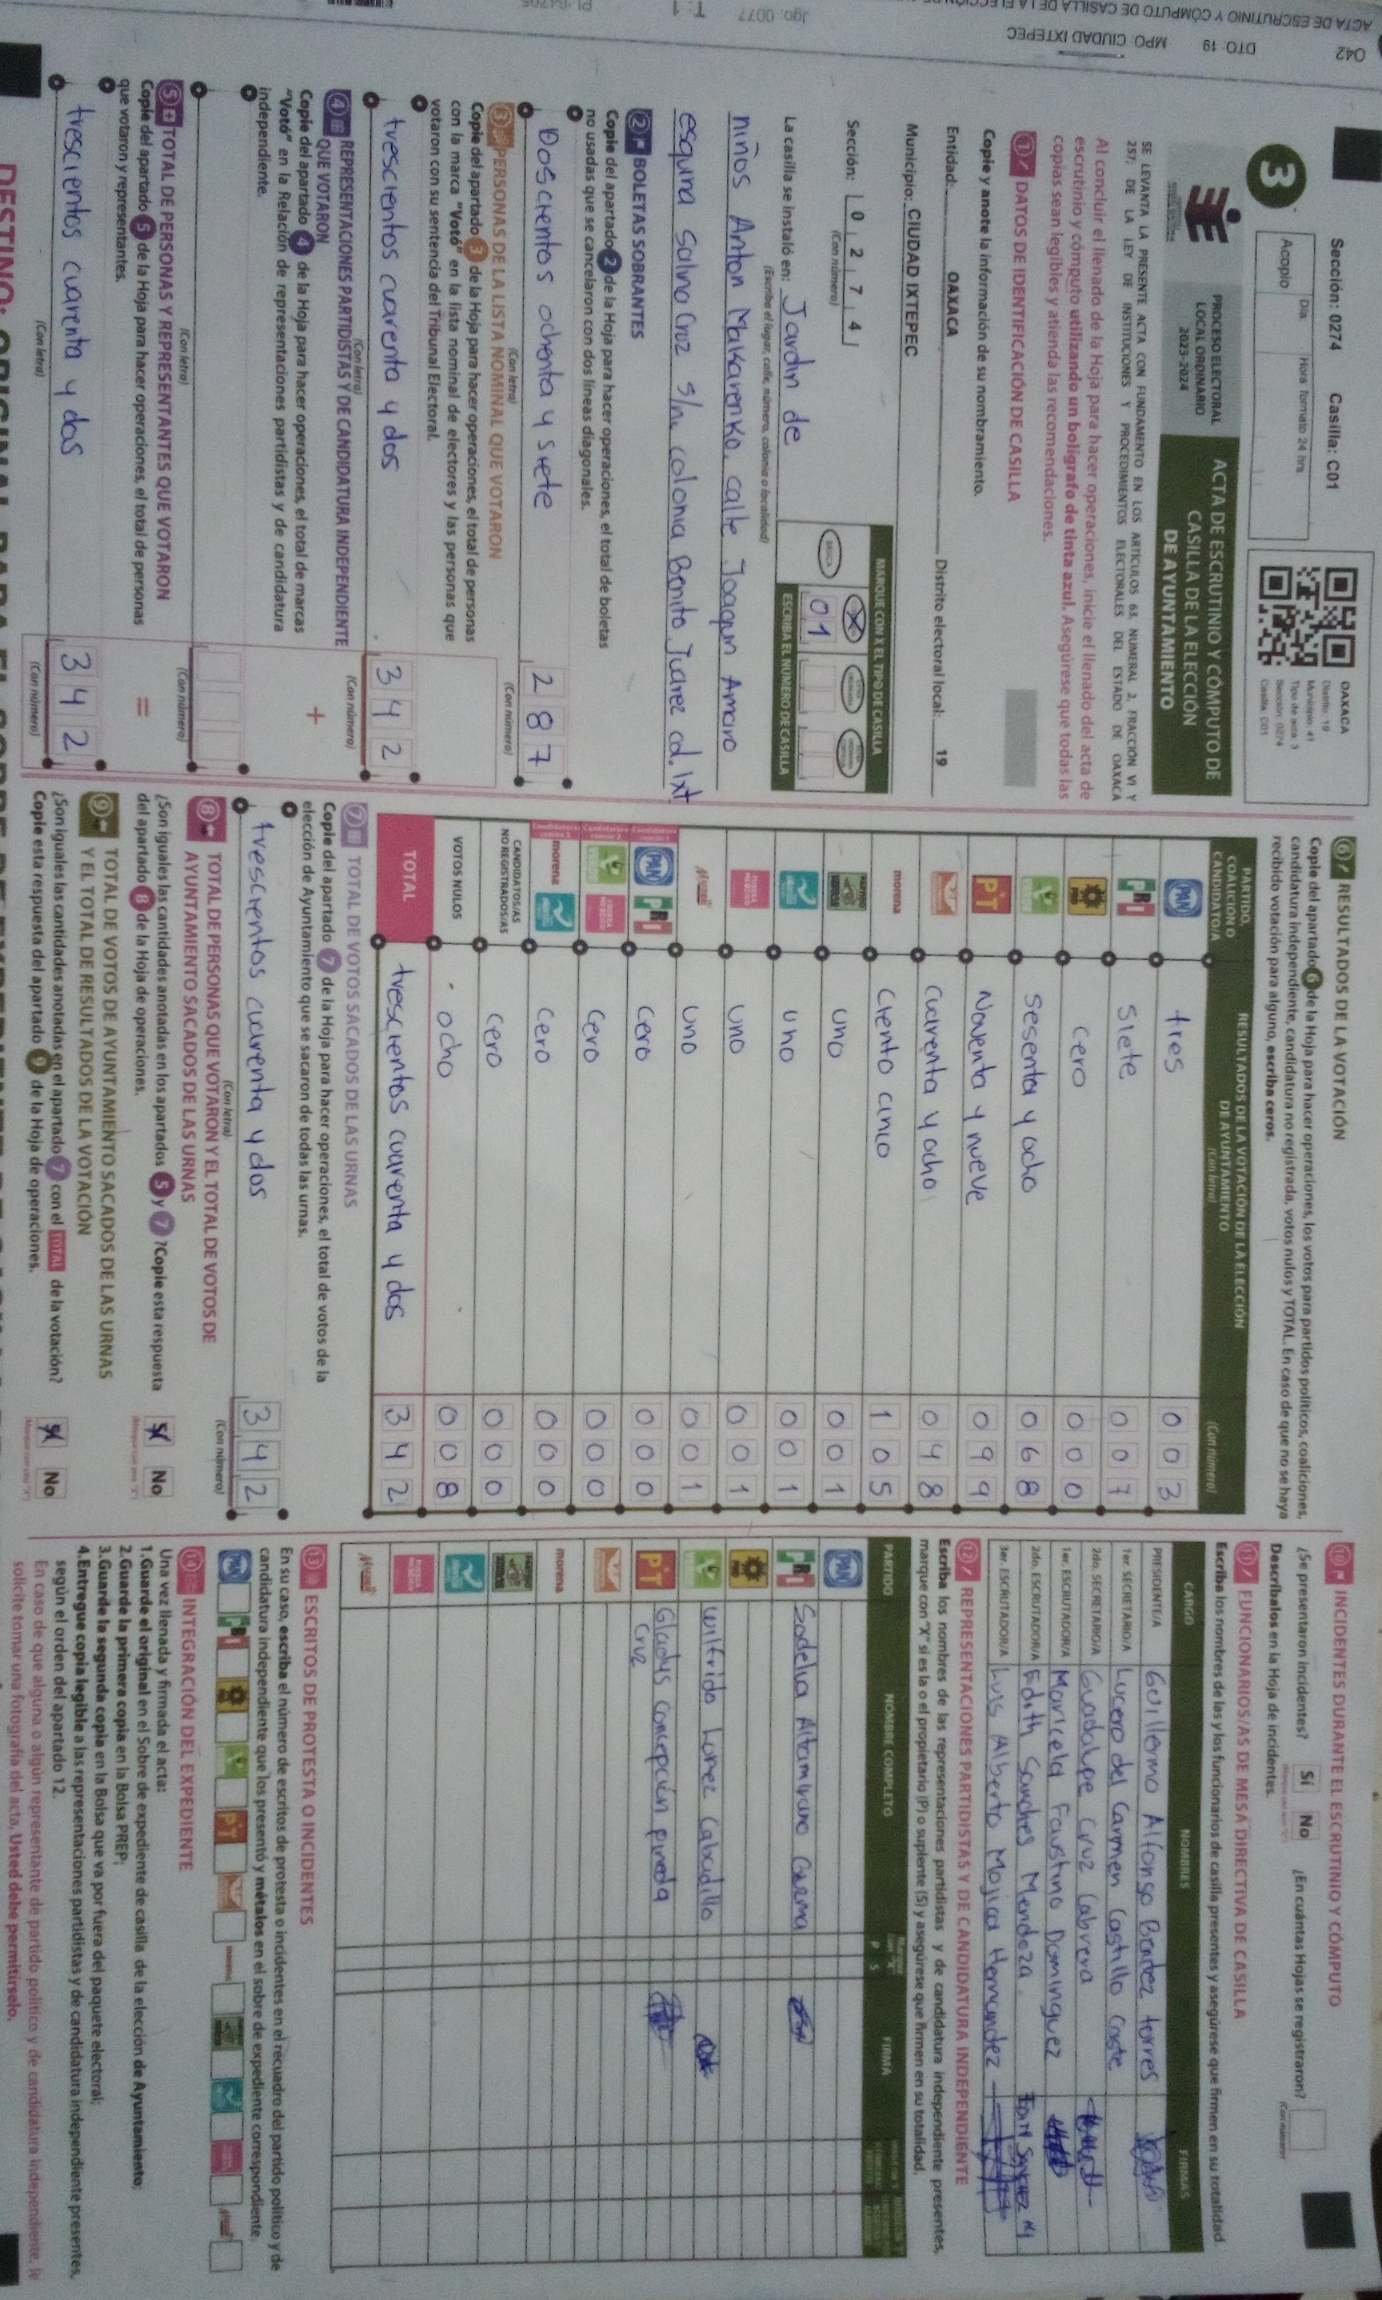 042
DTO: 19 MPO: CIUDAD IXTEPEC
Sección: 0274 Casilla: C01
3
Día Hora formato 24 hrs
Acopio
OAXACA
Distrito: 19
Municipio: 41
Tipo de acta: 3
Sección: 0274
Casilla: C01
PROCESO ELECTORAL
LOCAL ORDINARIO
2023-2024
ACTA DE ESCRUTINIO Y CÓMPUTO DE
CASILLA DE LA ELECCIÓN
DE AYUNTAMIENTO
SE LEVANTA LA PRESENTE ACTA CON FUNDAMENTO EN LOS ARTÍCULOS 63, NUMERAL 2, FRACCIÓN VI Y
257; DE LA LEY DE INSTITUCIONES Y PROCEDIMIENTOS ELECTORALES DEL ESTADO DE OAXACA
Al concluir el llenado de la Hoja para hacer operaciones, inicie el llenado del acta de
escrutinio y cómputo utilizando un bolígrafo de tinta azul. Asegúrese que todas las
copias sean legibles y atienda las recomendaciones.
1 DATOS DE IDENTIFICACIÓN DE CASILLA
Copie y anote la información de su nombramiento.
Entidad: OAXACA Distrito electoral local: 19
Municipio: CIUDAD IXTEPEC
Sección: 0 2 7 4
(Con número)
MARQUE CON X EL TIPO DE CASILLA
BÁSICA
01
ESCRIBA EL NÚMERO DE CASILLA
La casilla se instaló en: Jardín de
(Escriba el lugar, calle, número, colonia o localidad)
niños Anton Makarenko, calle Joaquin Amaro
esquina Salina Cruz s/n, colonia Benito Juarez cd. Ixt
2 BOLETAS SOBRANTES
Copie del apartado 2 de la Hoja para hacer operaciones, el total de boletas
no usadas que se cancelaron con dos líneas diagonales.
Doscientos ochenta y siete 2 8 7
(Con letra) (Con número)
3 PERSONAS DE LA LISTA NOMINAL QUE VOTARON
Copie del apartado 3 de la Hoja para hacer operaciones, el total de personas
con la marca "Votó" en la lista nominal de electores y las personas que
votaron con su sentencia del Tribunal Electoral.
trescientos cuarenta y dos 3 4 2
(Con letra) (Con número)
4 REPRESENTACIONES PARTIDISTAS Y DE CANDIDATURA INDEPENDIENTE
QUE VOTARON
+
Copie del apartado 4 de la Hoja para hacer operaciones, el total de marcas
"Votó" en la Relación de representaciones partidistas y de candidatura
independiente.
(Con letra) (Con número)
5 TOTAL DE PERSONAS Y REPRESENTANTES QUE VOTARON
=
Copie del apartado 5 de la Hoja para hacer operaciones, el total de personas
que votaron y representantes.
trescientos cuarenta y dos 3 4 2
(Con letra) (Con número)
6 RESULTADOS DE LA VOTACIÓN
Copie del apartado 6 de la Hoja para hacer operaciones, los votos para partidos políticos, coaliciones,
candidatura independiente, candidatura no registrada, votos nulos y TOTAL. En caso de que no se haya
recibido votación para alguno, escriba ceros.
PARTIDO, COALICIÓN O CANDIDATO/A
RESULTADOS DE LA VOTACIÓN DE LA ELECCIÓN DE AYUNTAMIENTO
(Con letra) (Con número)
PAN tres 0 0 3
PRI siete 0 0 7
PRD cero 0 0 0
sesenta y ocho 0 6 8
PT Noventa y nueve 0 9 9
cuarenta y ocho 0 4 8
morena ciento cinco 1 0 5
uno 0 0 1
uno 0 0 1
uno 0 0 1
uno 0 0 1
PAN PRI cero 0 0 0
cero 0 0 0
morena cero 0 0 0
CANDIDATOS/AS NO REGISTRADOS/AS cero 0 0 0
VOTOS NULOS ocho 0 0 8
TOTAL trescientos cuarenta y dos 3 4 2
7 TOTAL DE VOTOS SACADOS DE LAS URNAS
Copie del apartado 7 de la Hoja para hacer operaciones, el total de votos de la
elección de Ayuntamiento que se sacaron de todas las urnas.
trescientos cuarenta y dos 3 4 2
(Con letra) (Con número)
8 TOTAL DE PERSONAS QUE VOTARON Y EL TOTAL DE VOTOS DE
AYUNTAMIENTO SACADOS DE LAS URNAS
¿Son iguales las cantidades anotadas en los apartados 5 y 7? Copie esta respuesta
del apartado 8 de la Hoja de operaciones.
Sí No
9 TOTAL DE VOTOS DE AYUNTAMIENTO SACADOS DE LAS URNAS
Y EL TOTAL DE RESULTADOS DE LA VOTACIÓN
¿Son iguales las cantidades anotadas en el apartado 7 con el TOTAL de la votación?
Copie esta respuesta del apartado 9 de la Hoja de operaciones.
Sí No
10 INCIDENTES DURANTE EL ESCRUTINIO Y CÓMPUTO
¿Se presentaron incidentes? Sí No ¿En cuántas Hojas se registraron?
(Con número)
Descríbalos en la Hoja de incidentes.
11 FUNCIONARIOS/AS DE MESA DIRECTIVA DE CASILLA
Escriba los nombres de las y los funcionarios de casilla presentes y asegúrese que firmen en su totalidad.
CARGO NOMBRES FIRMAS
PRESIDENTE/A Guillermo Alfonso Benitez torres
1er. SECRETARIO/A Lucero del Carmen Castillo Coste
2do. SECRETARIO/A Guadalupe Cruz Cabrera
1er. ESCRUTADOR/A Maricela Faustino Dominguez
2do. ESCRUTADOR/A Edith Sanches Mendoza
3er. ESCRUTADOR/A Luis Alberto Mojica Hernandez
12 REPRESENTACIONES PARTIDISTAS Y DE CANDIDATURA INDEPENDIENTE
Escriba los nombres de las representaciones partidistas y de candidatura independiente presentes,
marque con "X" si es la o el propietario (P) o suplente (S) y asegúrese que firmen en su totalidad.
PARTIDO NOMBRE COMPLETO P S FIRMA
PAN
PRI Sodelva Altamirano
PRD
Wilfrido Lopez Cabadillo
PT Gladys Concepción pineda
Cruz
morena
13 ESCRITOS DE PROTESTA O INCIDENTES
En su caso, escriba el número de escritos de protesta o incidentes en el recuadro del partido político y de
candidatura independiente que los presentó y métalos en el sobre de expediente correspondiente.
PAN PRI PRD PT
14 INTEGRACIÓN DEL EXPEDIENTE
Una vez llenada y firmada el acta:
1.Guarde el original en el Sobre de expediente de casilla de la elección de Ayuntamiento;
2.Guarde la primera copia en la Bolsa PREP;
3.Guarde la segunda copia en la Bolsa que va por fuera del paquete electoral;
4.Entregue copia legible a las representaciones partidistas y de candidatura independiente presentes,
según el orden del apartado 12.
En caso de que alguna o algún representante de partido político y de candidatura independiente, le
solicite tomar una fotografía del acta, Usted debe permitírselo.